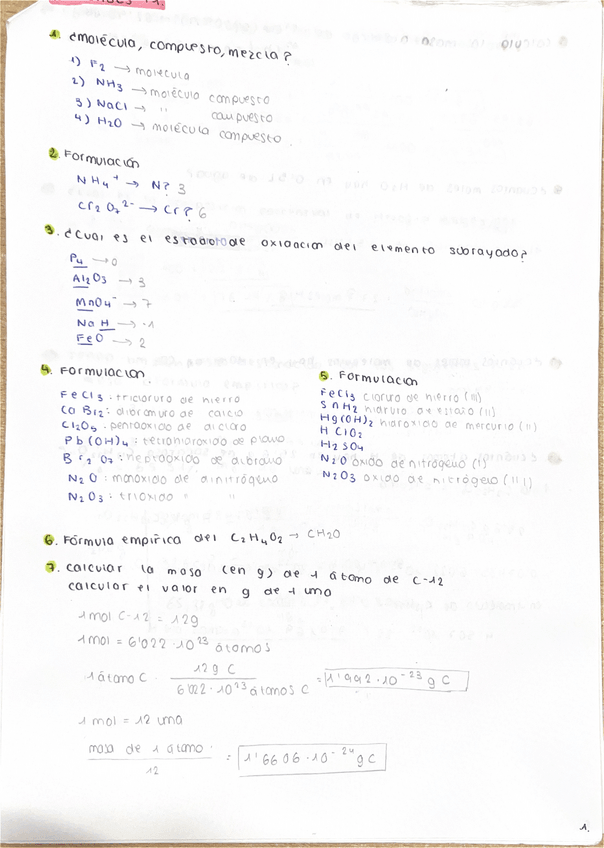 1. ¿molécula, compuesto, mezcla?
1) F2 → molécula
2) NH3 → molécula compuesto
3) NaCl → '' compuesto
4) H2O → molécula compuesto.
2. Formulación
NH4+ → N? 3
Cr2O7 2- → Cr? 6
3. ¿Cual es el estado de oxidación del elemento subrayado?
P4 → 0
Al2O3 → 3
MnO4- → 7
NaH → -1
FeO → 2
4. Formulación
FeCl3: tricloruro de hierro
CaBr2: dibromuro de calcio
Cl2O5: pentaóxido de dicloro
Pb(OH)4: tetrahidróxido de plomo
Br2O7: heptaóxido de dibromo
N2O: monóxido de dinitrógeno
N2O3: trióxido '' ''
5. Formulación
FeCl3 cloruro de hierro (III)
SnH2 hidruro de estaño (II)
Hg(OH)2 hidróxido de mercurio (II)
HClO2
H2SO4
N2O óxido de nitrógeno (I)
N2O3 óxido de nitrógeno (III)
6. Fórmula empírica del C2H4O2 → CH2O
7. calcular la masa (en g) de 1 átomo de C-12
calcular el valor en g de 1 uma
1 mol C-12 = 12g
1 mol = 6'022 · 10^23 átomos
1 átomo C · 12 g C / 6'022 · 10^23 átomos C = 1'992 · 10^-23 g C
1 mol = 12 uma
masa de 1 átomo / 12 = 1'6606 · 10^-24 g C
1.